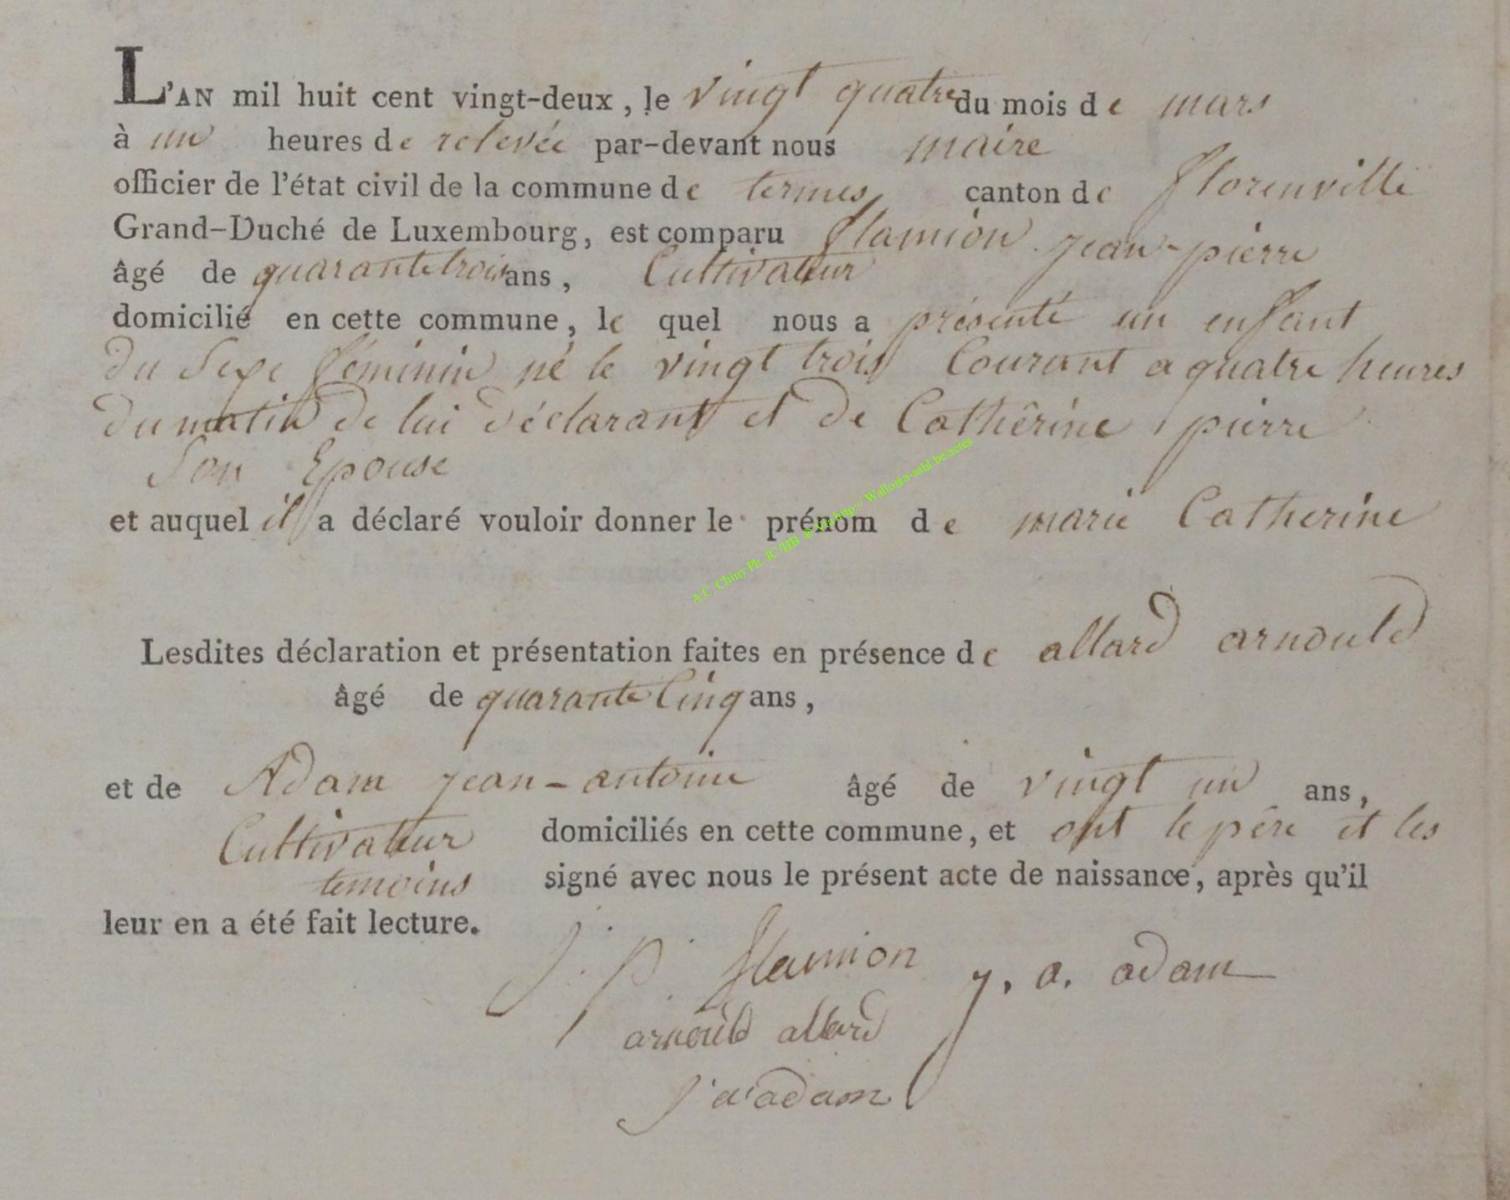 L'AN mil huit cent vingt-deux, le vingt quatre du mois de mars
à un heures de relevée par-devant nous maire
officier de l'état civil de la commune de termes canton de florenville
Grand-Duché de Luxembourg, est comparu flamion jean-pierre
âgé de quarante trois ans, Cultivateur
domicilié en cette commune, le quel nous a présenté un enfant
du Sexe féminin né le vingt trois Courant a quatre heures
du matin de lui déclarant et de Cathêrine pierre
Son Epouse
et auquel il a déclaré vouloir donner le prénom de marie Catherine
Lesdites déclaration et présentation faites en présence de allard arnould
âgé de quarante Cinq ans,
et de Adam jean-antoine âgé de vingt un ans,
Cultivateur domiciliés en cette commune, et ont le père et les
temoins signé avec nous le présent acte de naissance, après qu'il
leur en a été fait lecture.
J. P. flamion j. a. adam
arnould allard
j a adam